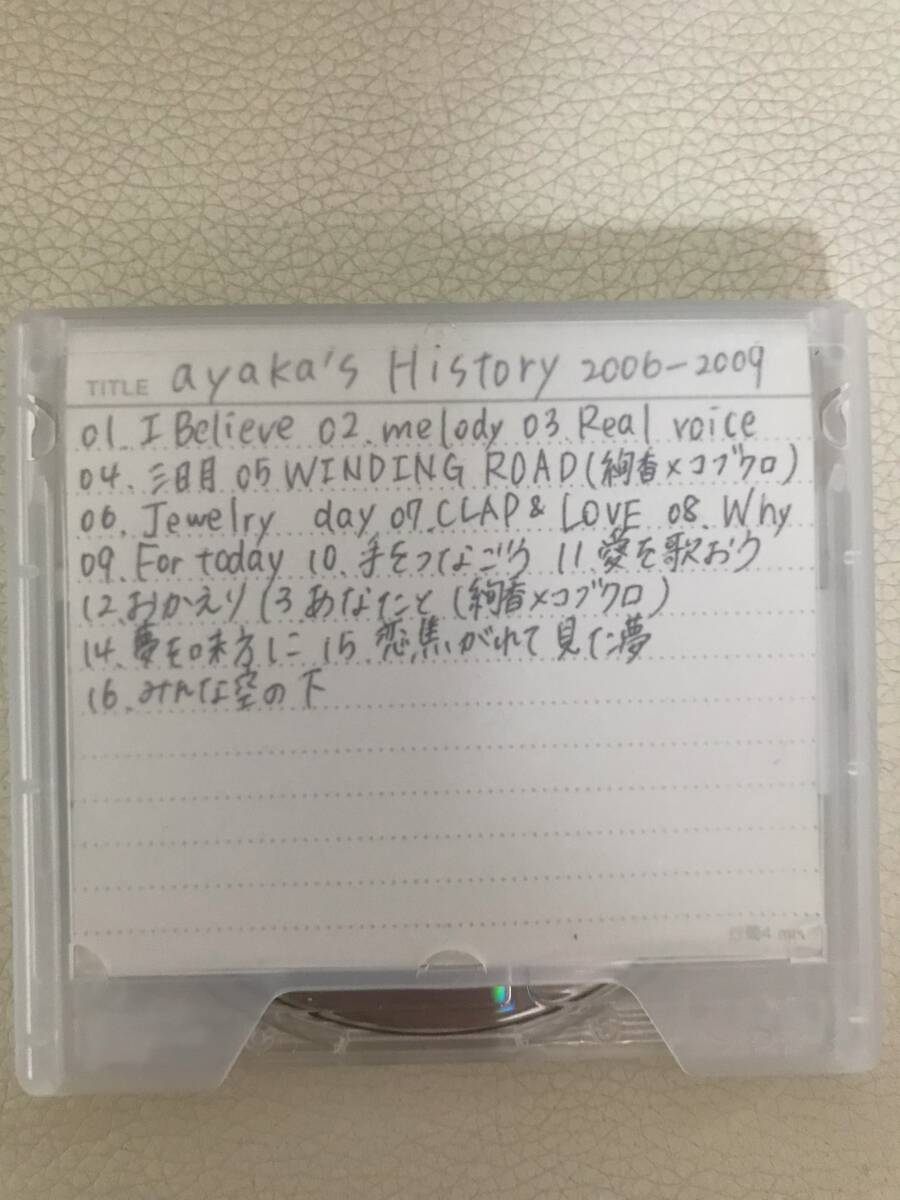 TITLE ayaka's History 2006-2009
01. I Believe 02. melody 03. Real voice
04. 三日月 05 WINDING ROAD(絢香×コブクロ)
06. Jewelry day 07. CLAP & LOVE 08. Why
09. For today 10. 手をつなごう 11. 愛を歌おう
12.おかえり 13 あなたと(絢香×コブクロ)
14. 夢を味方に 15 恋焦がれて見た夢
16. みんな空の下